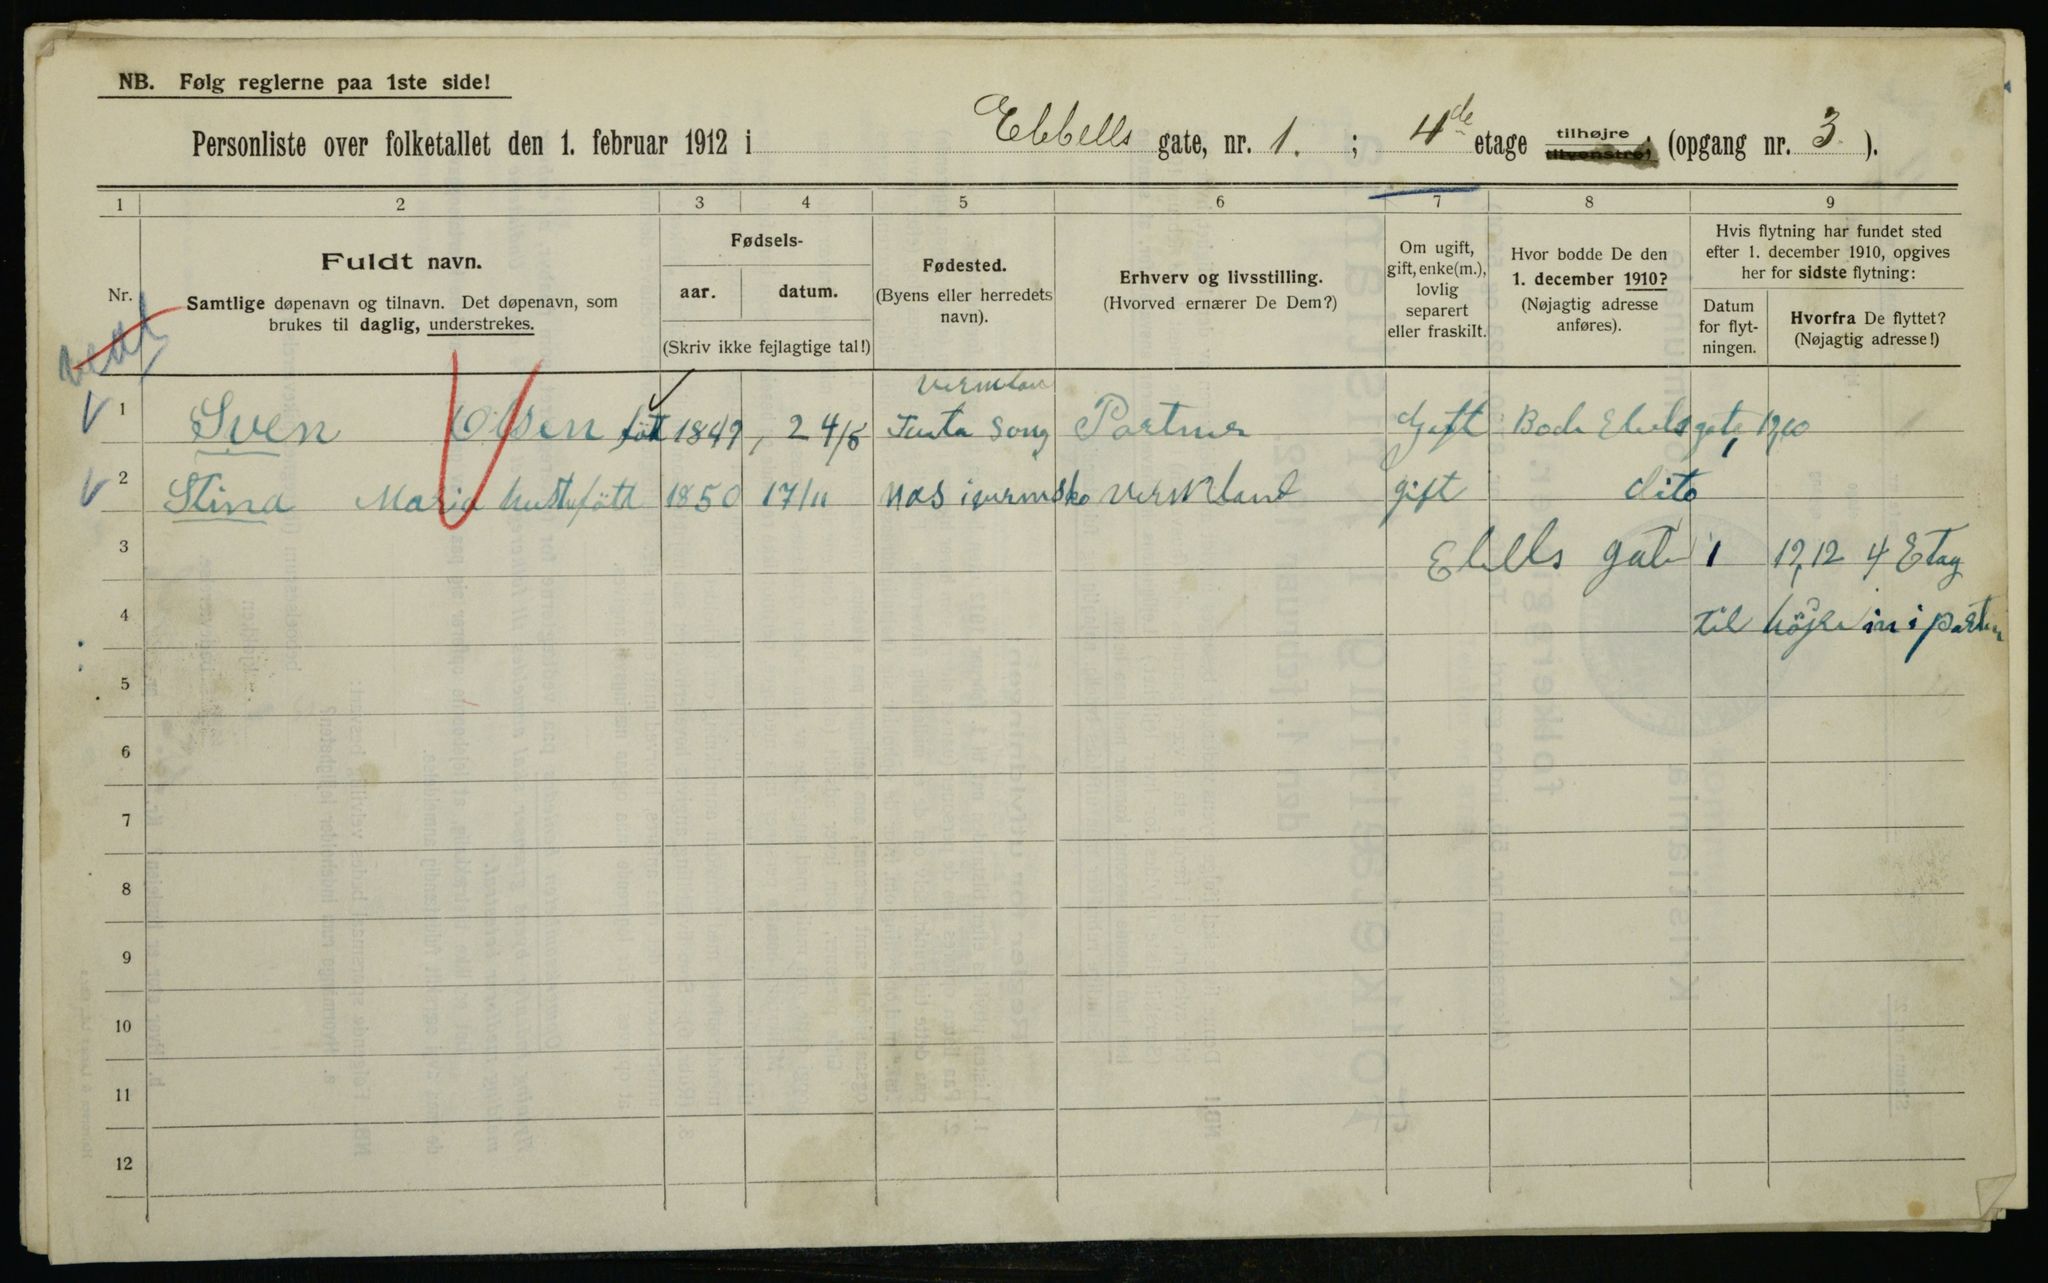 NB. Følg reglerne paa 1ste side!
Personliste over folketallet den 1. februar 1912 i Ebbells gate, nr. 1. ; 4de etage tilhøjre tilvenstre, (opgang nr. 3 ).
1 2 3 4 5 6 7 8 9
Nr.
Fuldt navn.
Samtlige døpenavn og tilnavn. Det døpenavn, som
brukes til daglig, understrekes.
Fødsels-
aar. datum.
(Skriv ikke fejlagtige tal!)
Fødested.
(Byens eller herredets
navn).
Erhverv og livsstilling.
(Hvorved ernærer De Dem?)
Om ugift,
gift, enke(m.),
lovlig
separert
eller fraskilt.
Hvor bodde De den
1. december 1910?
(Nøjagtig adresse
anføres).
Hvis flytning har fundet sted
efter 1. december 1910, opgives
her for sidste flytning:
Datum
for flyt-
ningen.
Hvorfra De flyttet?
(Nøjagtig adresse!)
1 Sven Olsen fött 1849, 24/5 Song Portner Gift Bode gate 1
2 Stina Maria fött 1850 17/11 gift dito
3 gate 1 12,12 4 Etag
4 til höjre in i
5
6
7
8
9
10
11
12